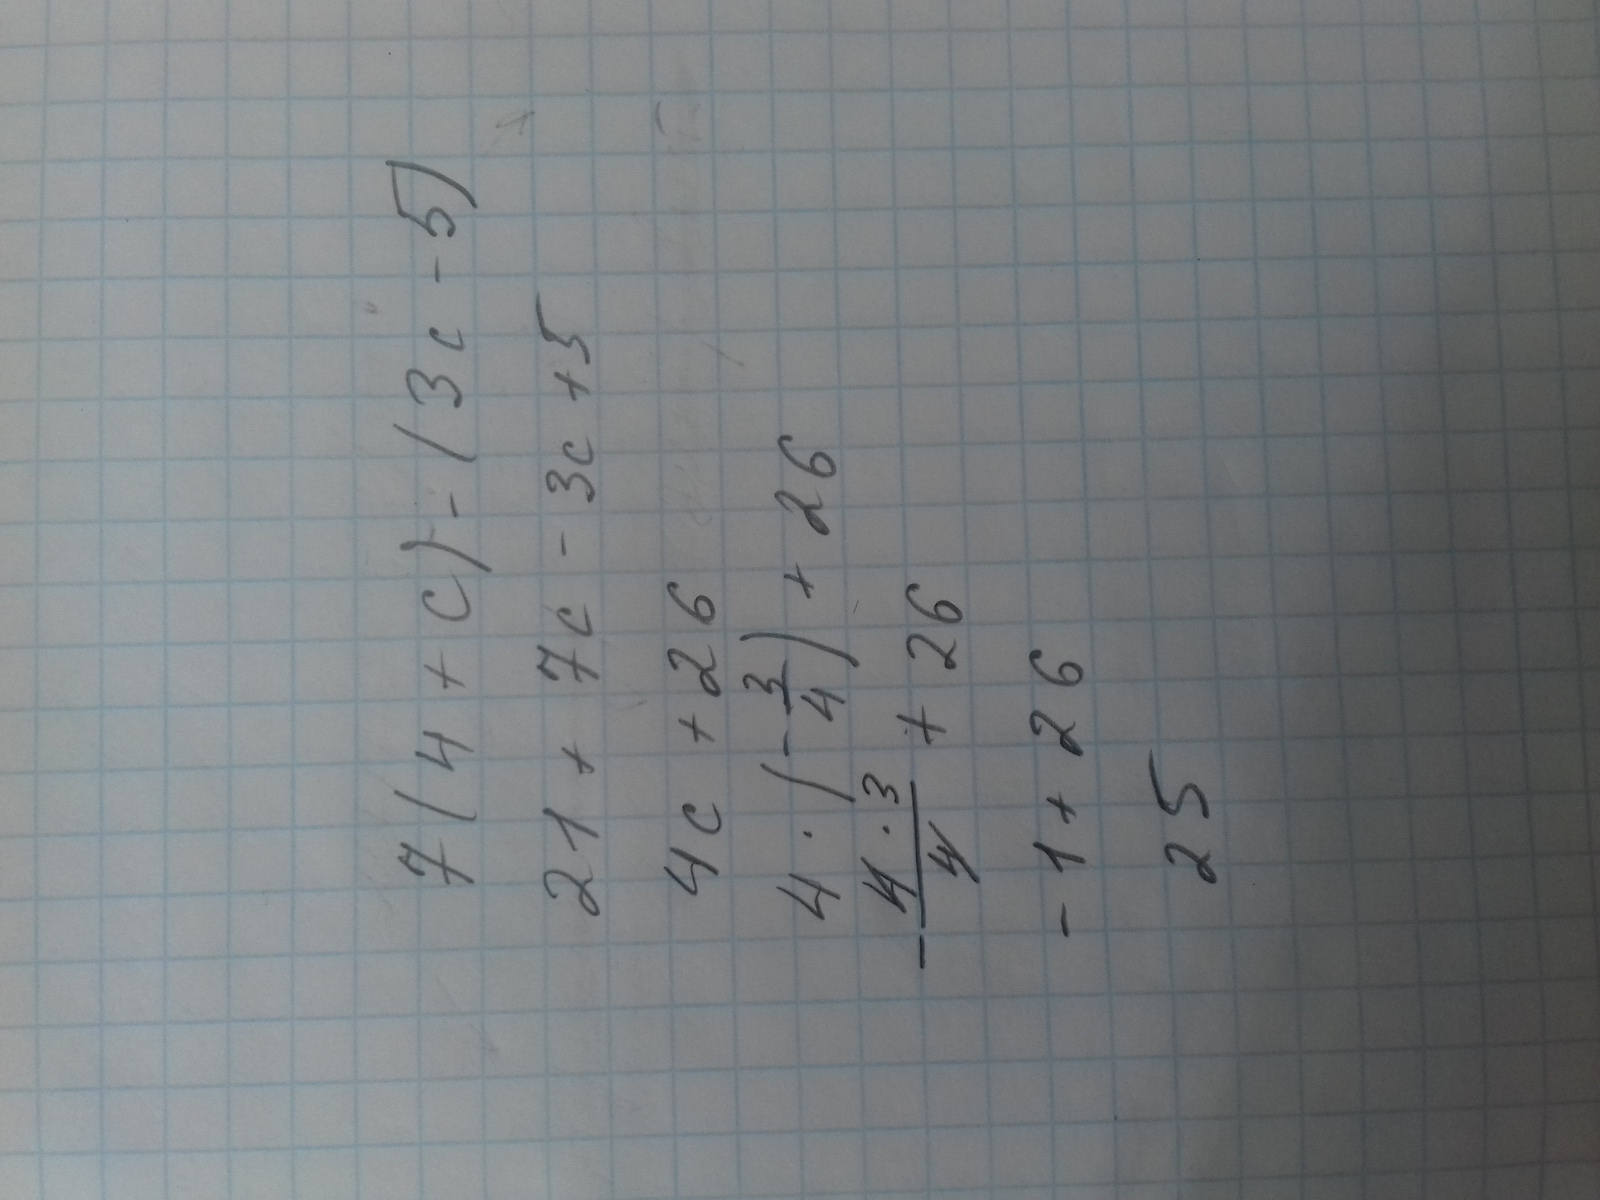 7(4+c)-(3c-5)
21+7c-3c+5
4c+26
4·(-3/4)+26
-4·3/4+26
-1+26
25